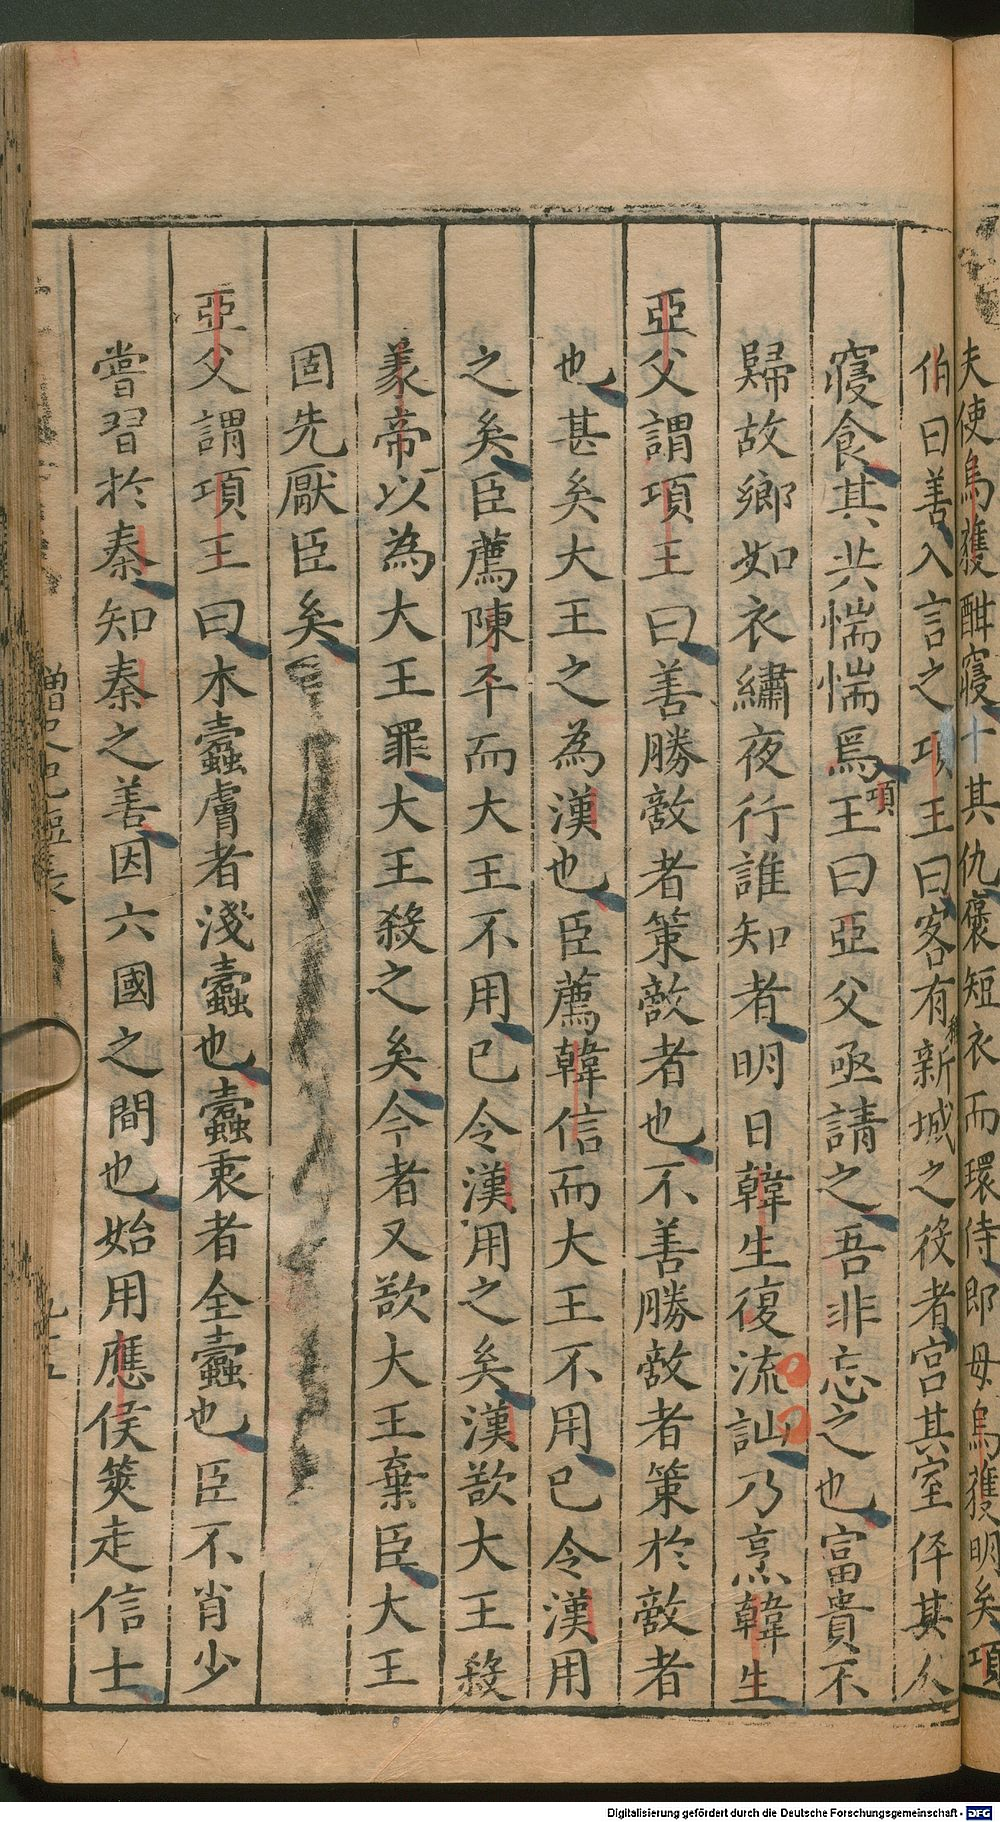 夫使烏獲酣寢十其仇褒短衣而環侍即毋烏獲明矣項
伯曰善入言之項王曰客有新城之役者宮其室伻其人
寢食其共惴惴焉項王曰亞父亟請之吾非忘之也富貴不
歸故鄉如衣繡夜行誰知者明日韓生復流訕乃烹韓生
亞父謂項王曰善勝敵者策敵者也不善勝敵者策於敵者
也甚矣大王之為漢也臣薦韓信而大王不用已令漢用
之矣臣薦陳平而大王不用已令漢用之矣漢欲大王殺
義帝以為大王罪大王殺之矣今者又欲大王棄臣大王
固先厭臣矣
亞父謂項王曰木蠹膚者淺蠹也蠹裏者全蠹也臣不肖少
嘗習於秦知秦之善因六國之間也始用應侯筴走信士
Digitalisierung gefördert durch die Deutsche Forschungsgemeinschaft - DFG